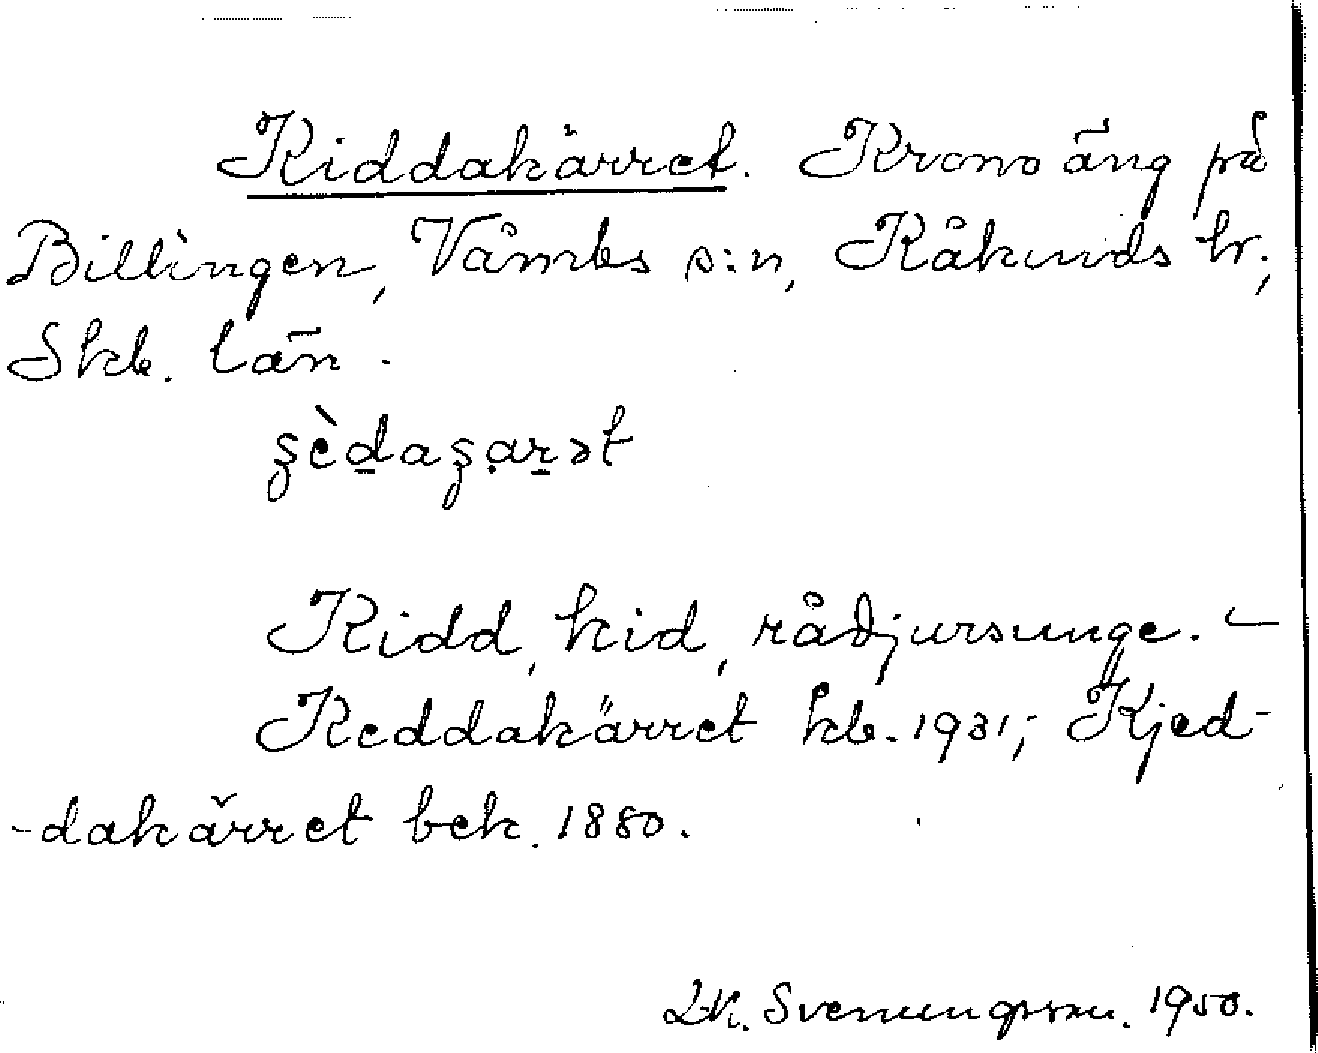 Kiddakärret. Krono äng på
Billingen, Våmbs s:n, Kåkinds hr.,
Skb. län.
ʂèd̲aʂạr̲ət
Kidd, kid, rådjursunge. –
Keddakärret kb. 1931; Kjed-
-dakärret bek. 1880.
Svenungsson. 1950.